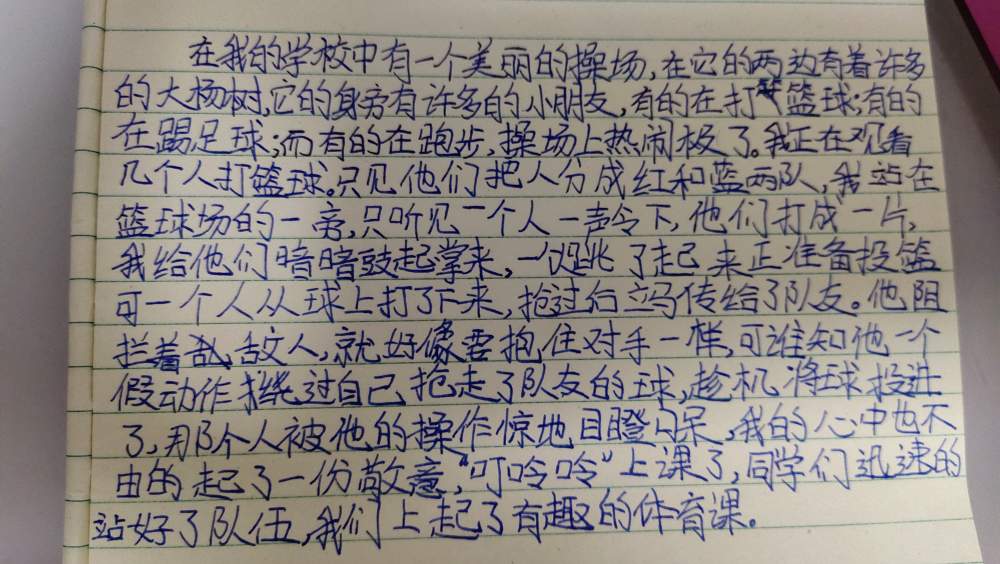 在我的学校中有一个美丽的操场,在它的两边有着许多
的大杨树,它的身旁有许多的小朋友,有的在打篮球;有的
在踢足球;而有的在跑步,操场上热闹极了。我正在观看
几个人打篮球。只见他们把人分成红和蓝两队,我站在
篮球场的一旁,只听见一个人一声令下,他们打成一片,
我给他们暗暗鼓起掌来,一跳了起来正准备投篮
可一个人从球上打了下来,抢过后立马传给了队友。他阻
拦着敌人,就好像要抱住对手一样,可谁知他一个
假动作绕过自己抢走了队友的球,趁机将球投进
了,那个人被他的操作惊地目瞪口呆,我的心中也不
由的起了一份敬意,“叮呤呤”上课了,同学们迅速的
站好了队伍,我们上起了有趣的体育课。